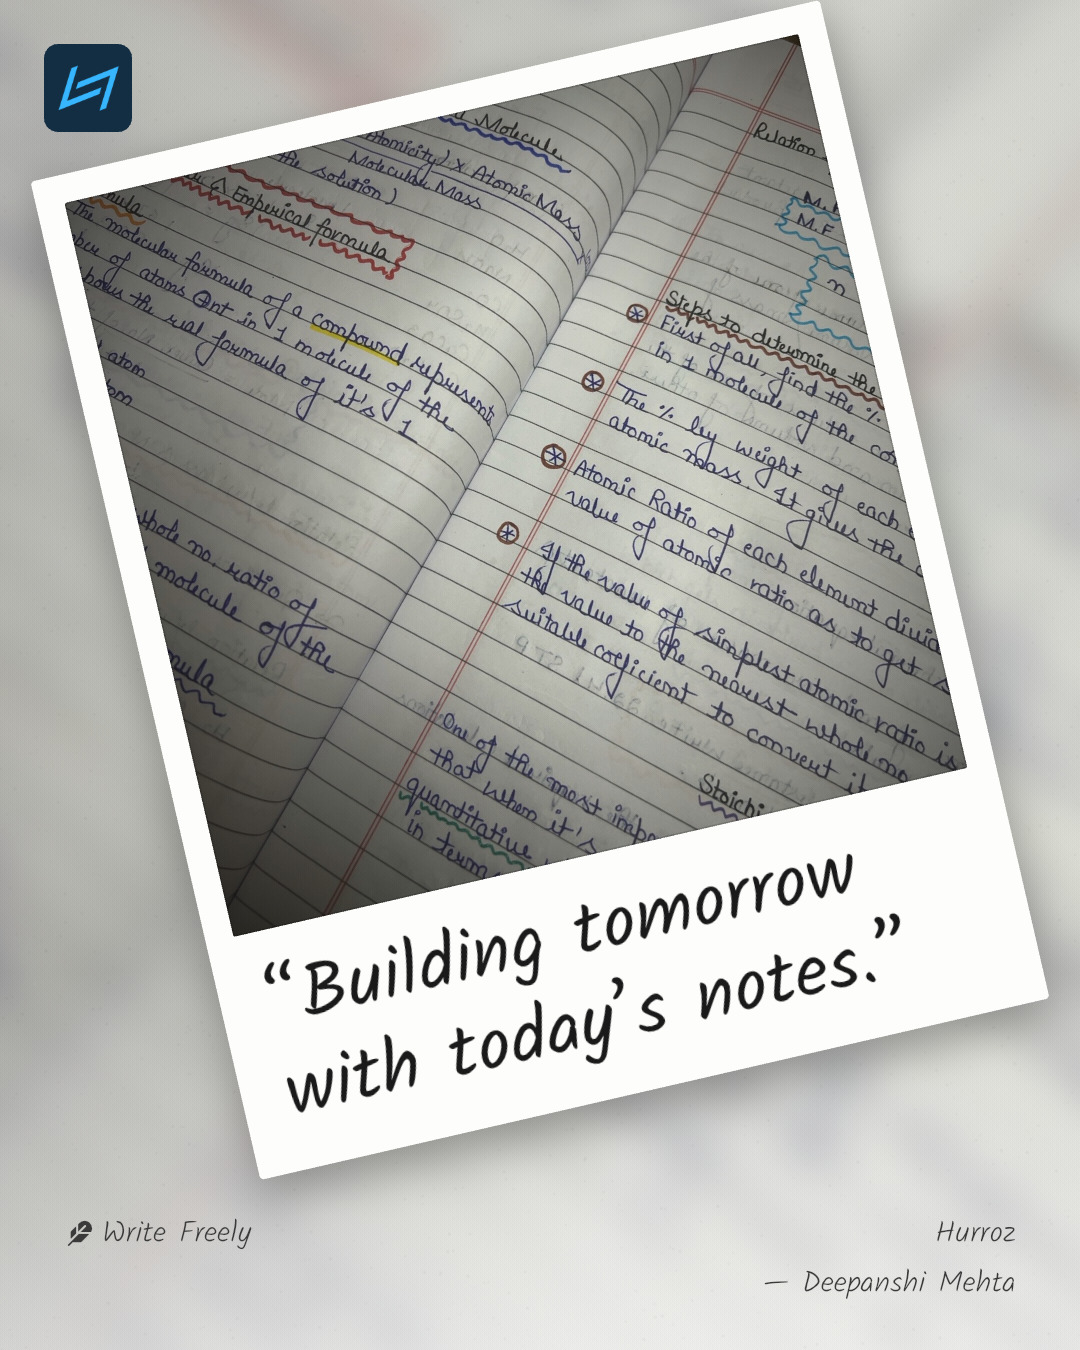 d Molecule
Atomicity) × Atomic Mass
Molecular Mass
the solution)
& Emperical formula
mula
The molecular formula of a compound represents
ber of atoms ⊕nt in 1 molecule of the
hows the real formula of it's 1
atom
tom
whole no. ratio of
molecule of the
mula
Relation
M.F
M.F
n
Steps to determine the
First of all, find the %
in 1 molecule of the com
The % by weight of each e
atomic mass. It gives the a
Atomic Ratio of each element divid
value of atomic ratio as to get s
If the value of simplest atomic ratio is
the value to the nearest whole no
suitable coeficient to convert it
Stoichi
One of the most impo
that when it's
quantitative
in term
“Building tomorrow
with today’s notes.”
Write Freely
Hurroz
— Deepanshi Mehta